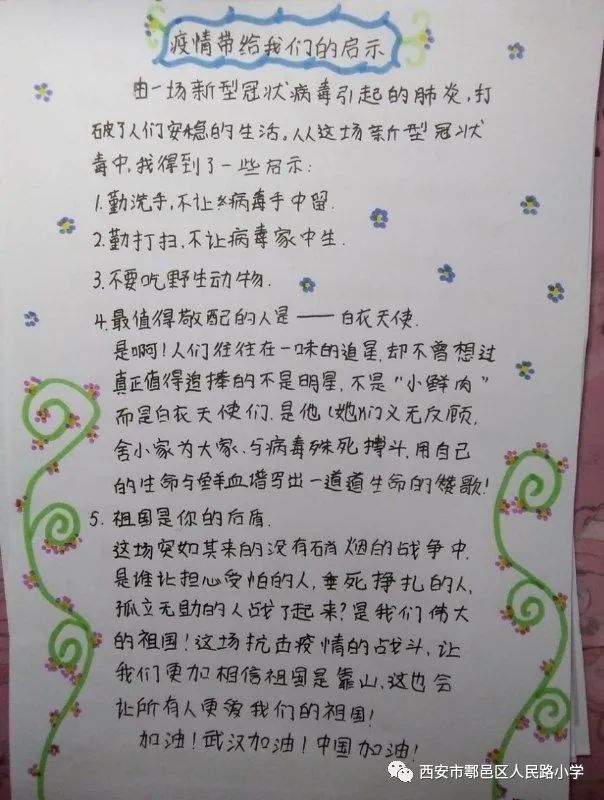 疫情带给我们的启示
由一场新型冠状病毒引起的肺炎,打
破了人们安稳的生活。从这场新型冠状
毒中,我得到了一些启示:
1.勤洗手,不让病毒手中留.
2.勤打扫,不让病毒家中生.
3.不要吃野生动物.
4.最值得敬配的人是——白衣天使.
是啊!人们往往在一味的追星,却不曾想过
真正值得追捧的不是明星,不是“小鲜肉”
而是白衣天使们.是他(她)们义无反顾,
舍小家为大家、与病毒殊死搏斗,用自己
的生命与鲜血谱写出一道道生命的赞歌!
5.祖国是你的后盾.
这场突如其来的没有硝烟的战争中.
是谁让担心受怕的人,垂死挣扎的人,
孤立无助的人战了起来?是我们伟大
的祖国!这场抗击疫情的战斗,让
我们更加相信祖国是靠山,这也会
让所有人更爱我们的祖国!
加油!武汉加油!中国加油!
西安市鄠邑区人民路小学